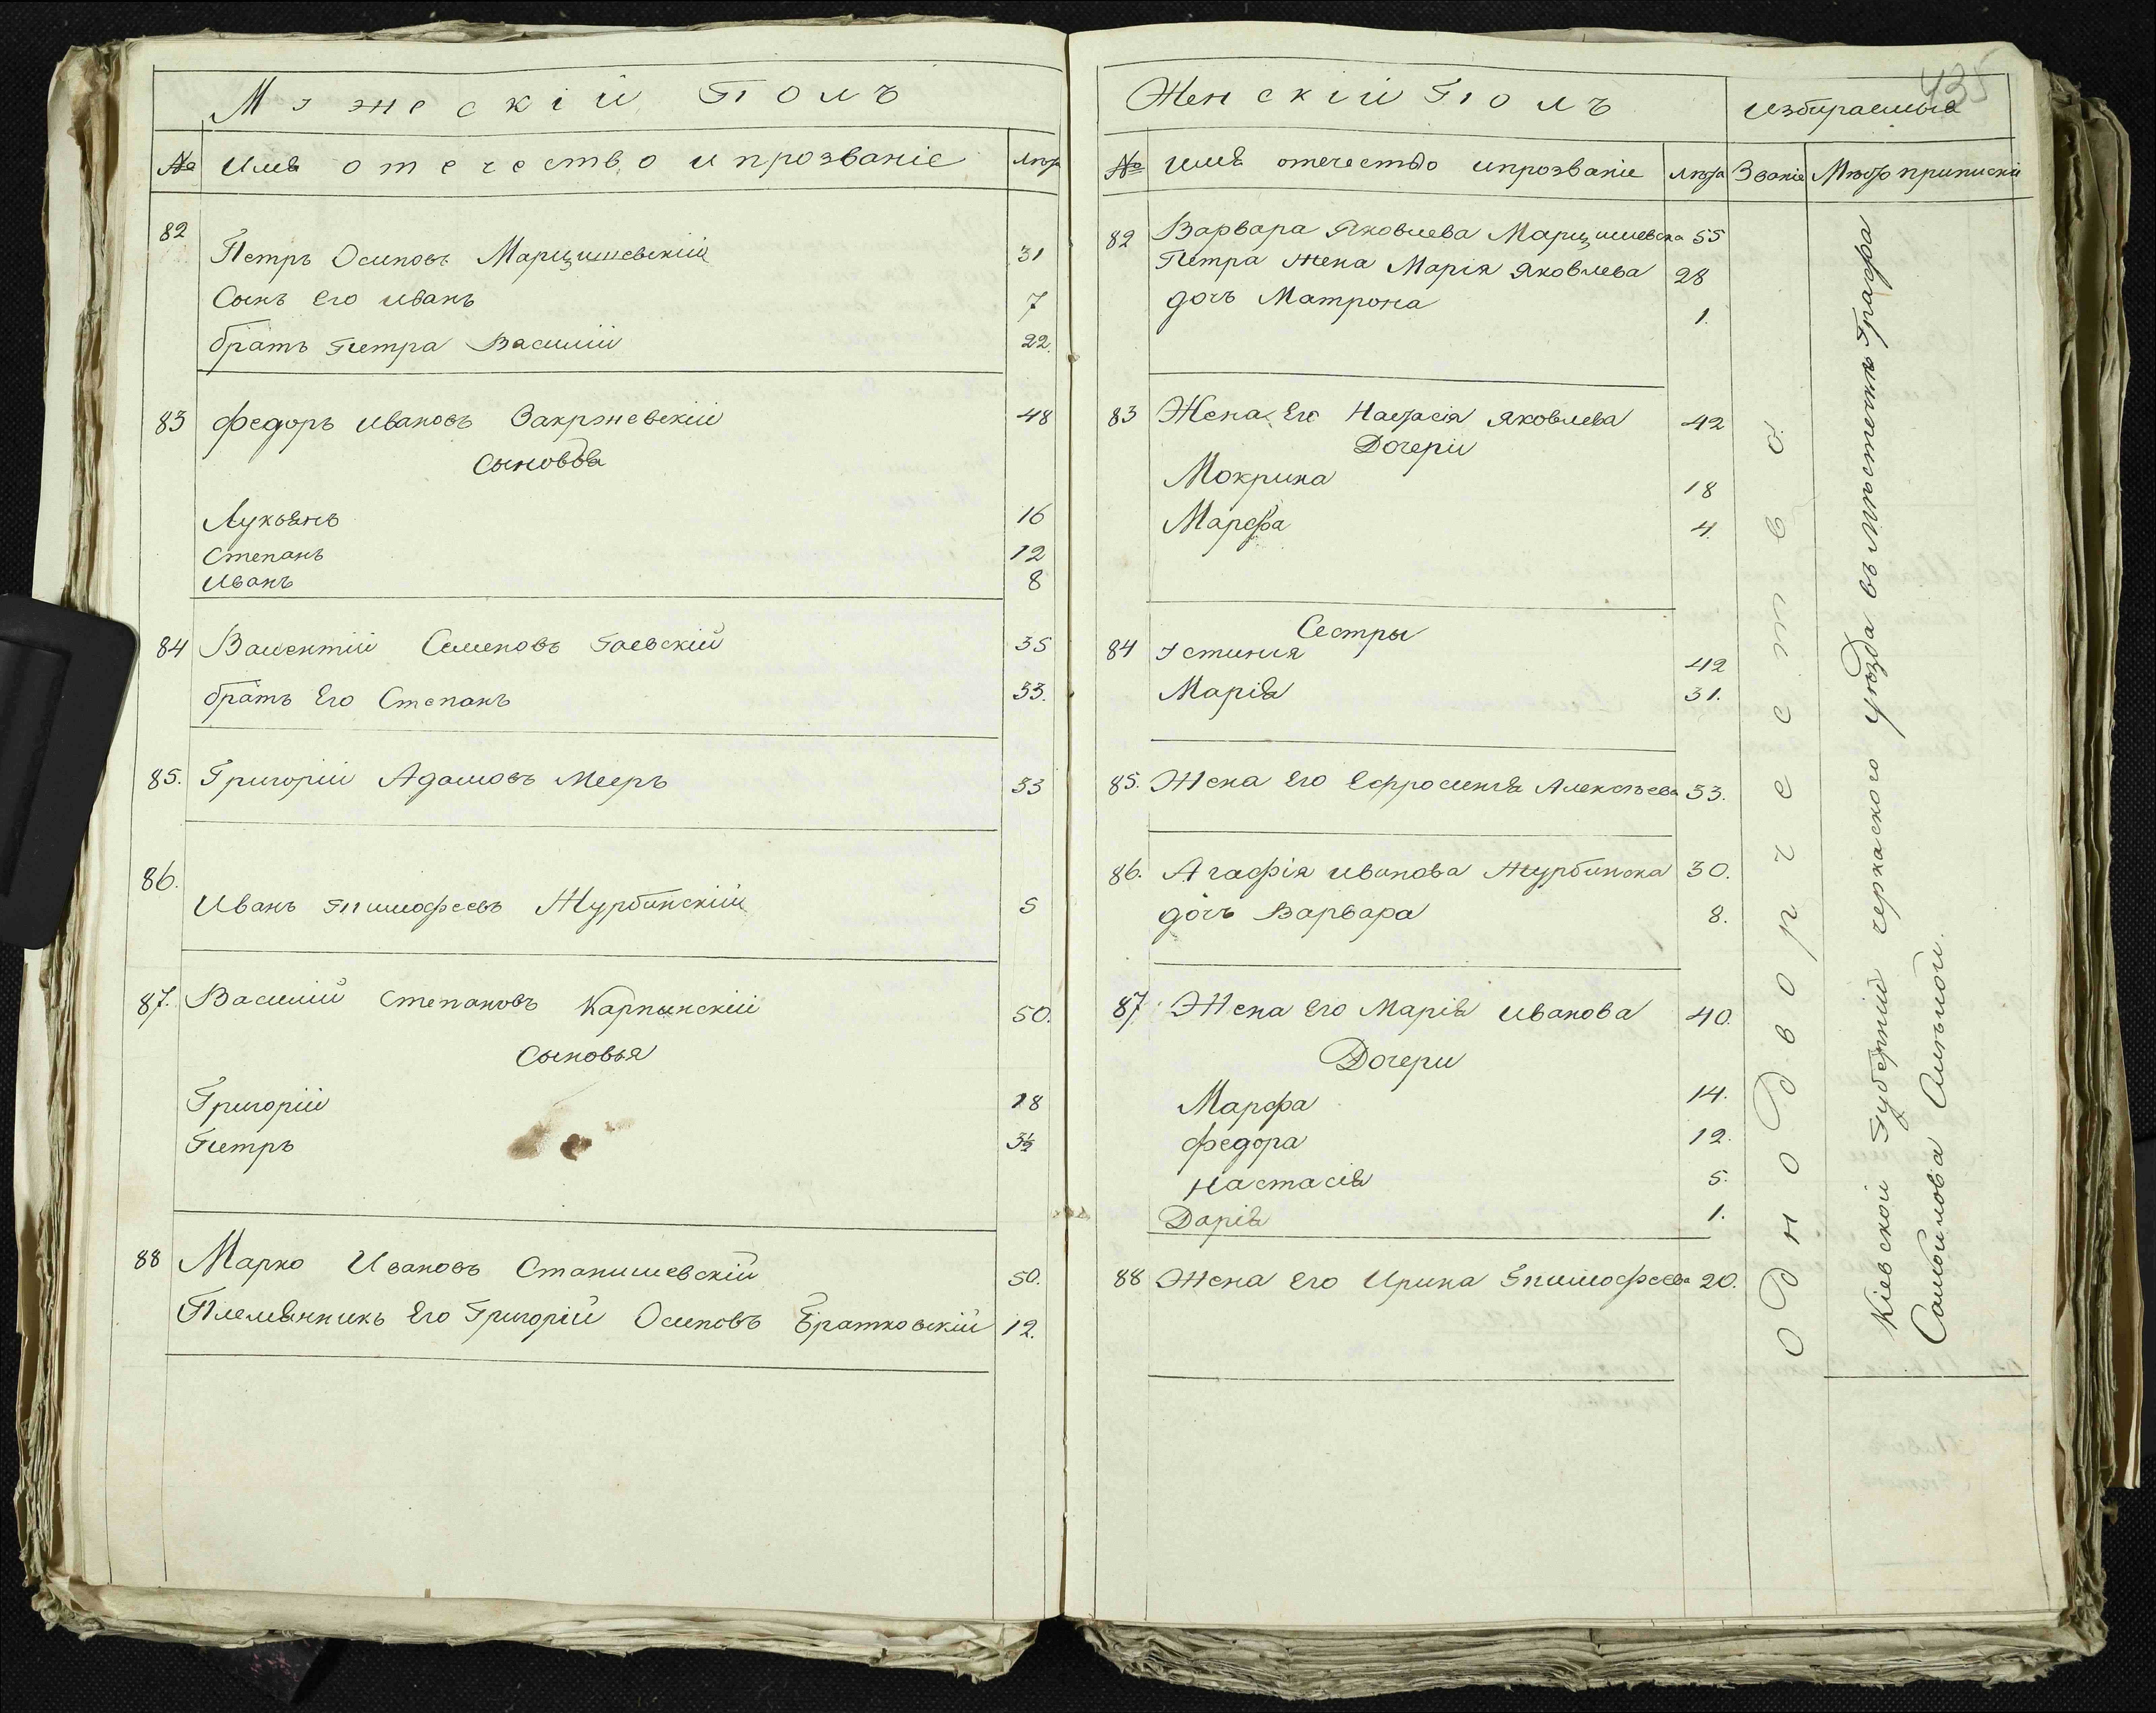 Мужескій Полъ
№ Имя отечество и прозваніе лѣта
82
Петръ Осиповъ Марцишевскій 31
Сынъ Его Иванъ 7
братъ Петра Василій 22.
83 Федоръ Ивановъ Закржевскій 48
Сыновья
Лукьянъ 16
Степанъ 12
Иванъ 8
84 Валентій Семеновъ Гаевскій 35
братъ Его Степанъ 33.
85. Григорій Адамовъ Мееръ 33
86.
Иванъ Тимофеевъ Журбинскій 5
87. Василій Степановъ Карпинскій 50.
Сыновья
Григорій 18
Петръ 3½
88 Марко Ивановъ Станишевскій 50.
Племянникъ Его Григорій Осиповъ Братковскій 12.
435
Женскій Полъ Избираемыя
№ Имя отечество ипрозваніе лѣта Званіе Место приписки
82 Варвара Яковлева Марцишевска 55
Петра Жена Марія Яковлева 28
дочь Матрона 1.
83 Жена Его Настасія Яковлева 42
Дочери
Мокрина 18
Марфа 4.
Сестры
84 Устинія 42
Марія 31.
85. Жена Его Ефросинія Алексѣева 33.
86. Агафія Иванова Журбинска 30.
дочь Варвара 8.
87 Жена Его Марія Иванова 40.
Дочери
Марфа 14.
Федора 12.
Настасія 5.
Дарія 1.
88 Жена Его Ирина Тимофеева 20.
Однодворчество.
Кіевской Губерніи черкаского уѣзда въ мѣстечкѣ Графа
Самойлова Смѣлой.